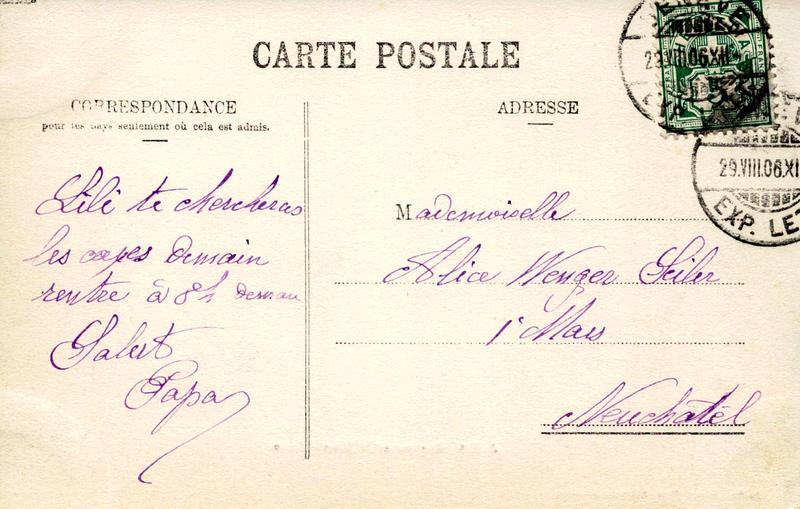 CARTE POSTALE
CORRESPONDANCE
pour les pays seulement où cela est admis.
ADRESSE
29.VIII.06.XII
29.VIII.06.XI
EXP. LET
Lili te chercheras
les capes demain
rentre à 8h demain
Salut
Papa
Mademoiselle
Alice Wenger Seiler
1 Mars
Neuchatel